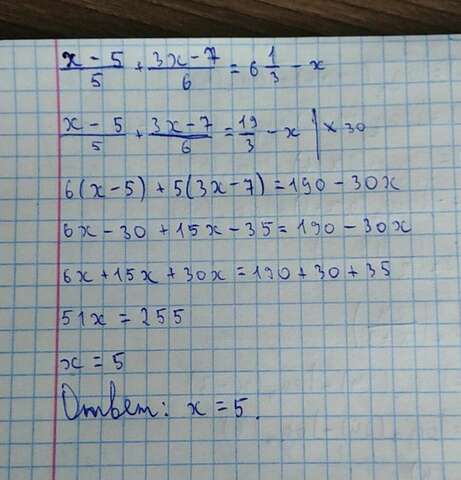 (x - 5)/5 + (3x - 7)/6 = 6 1/3 - x
(x - 5)/5 + (3x - 7)/6 = 19/3 - x | × 30
6(x - 5) + 5(3x - 7) = 190 - 30x
6x - 30 + 15x - 35 = 190 - 30x
6x + 15x + 30x = 190 + 30 + 35
51x = 255
x = 5
Ответ: x = 5.